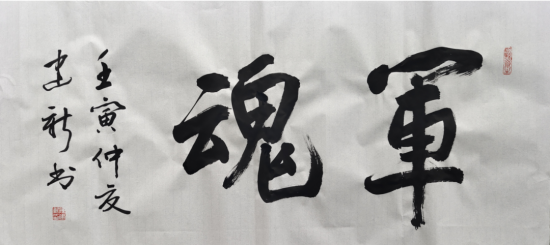 軍魂
壬寅仲夏
建新书